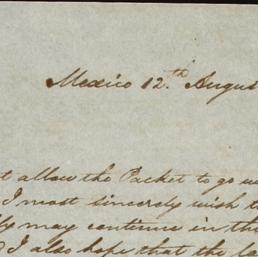 Mexico 12th Augus
t allow the Packet to go w
I most sincerely wish t
ly may continue in th
I also hope that the la